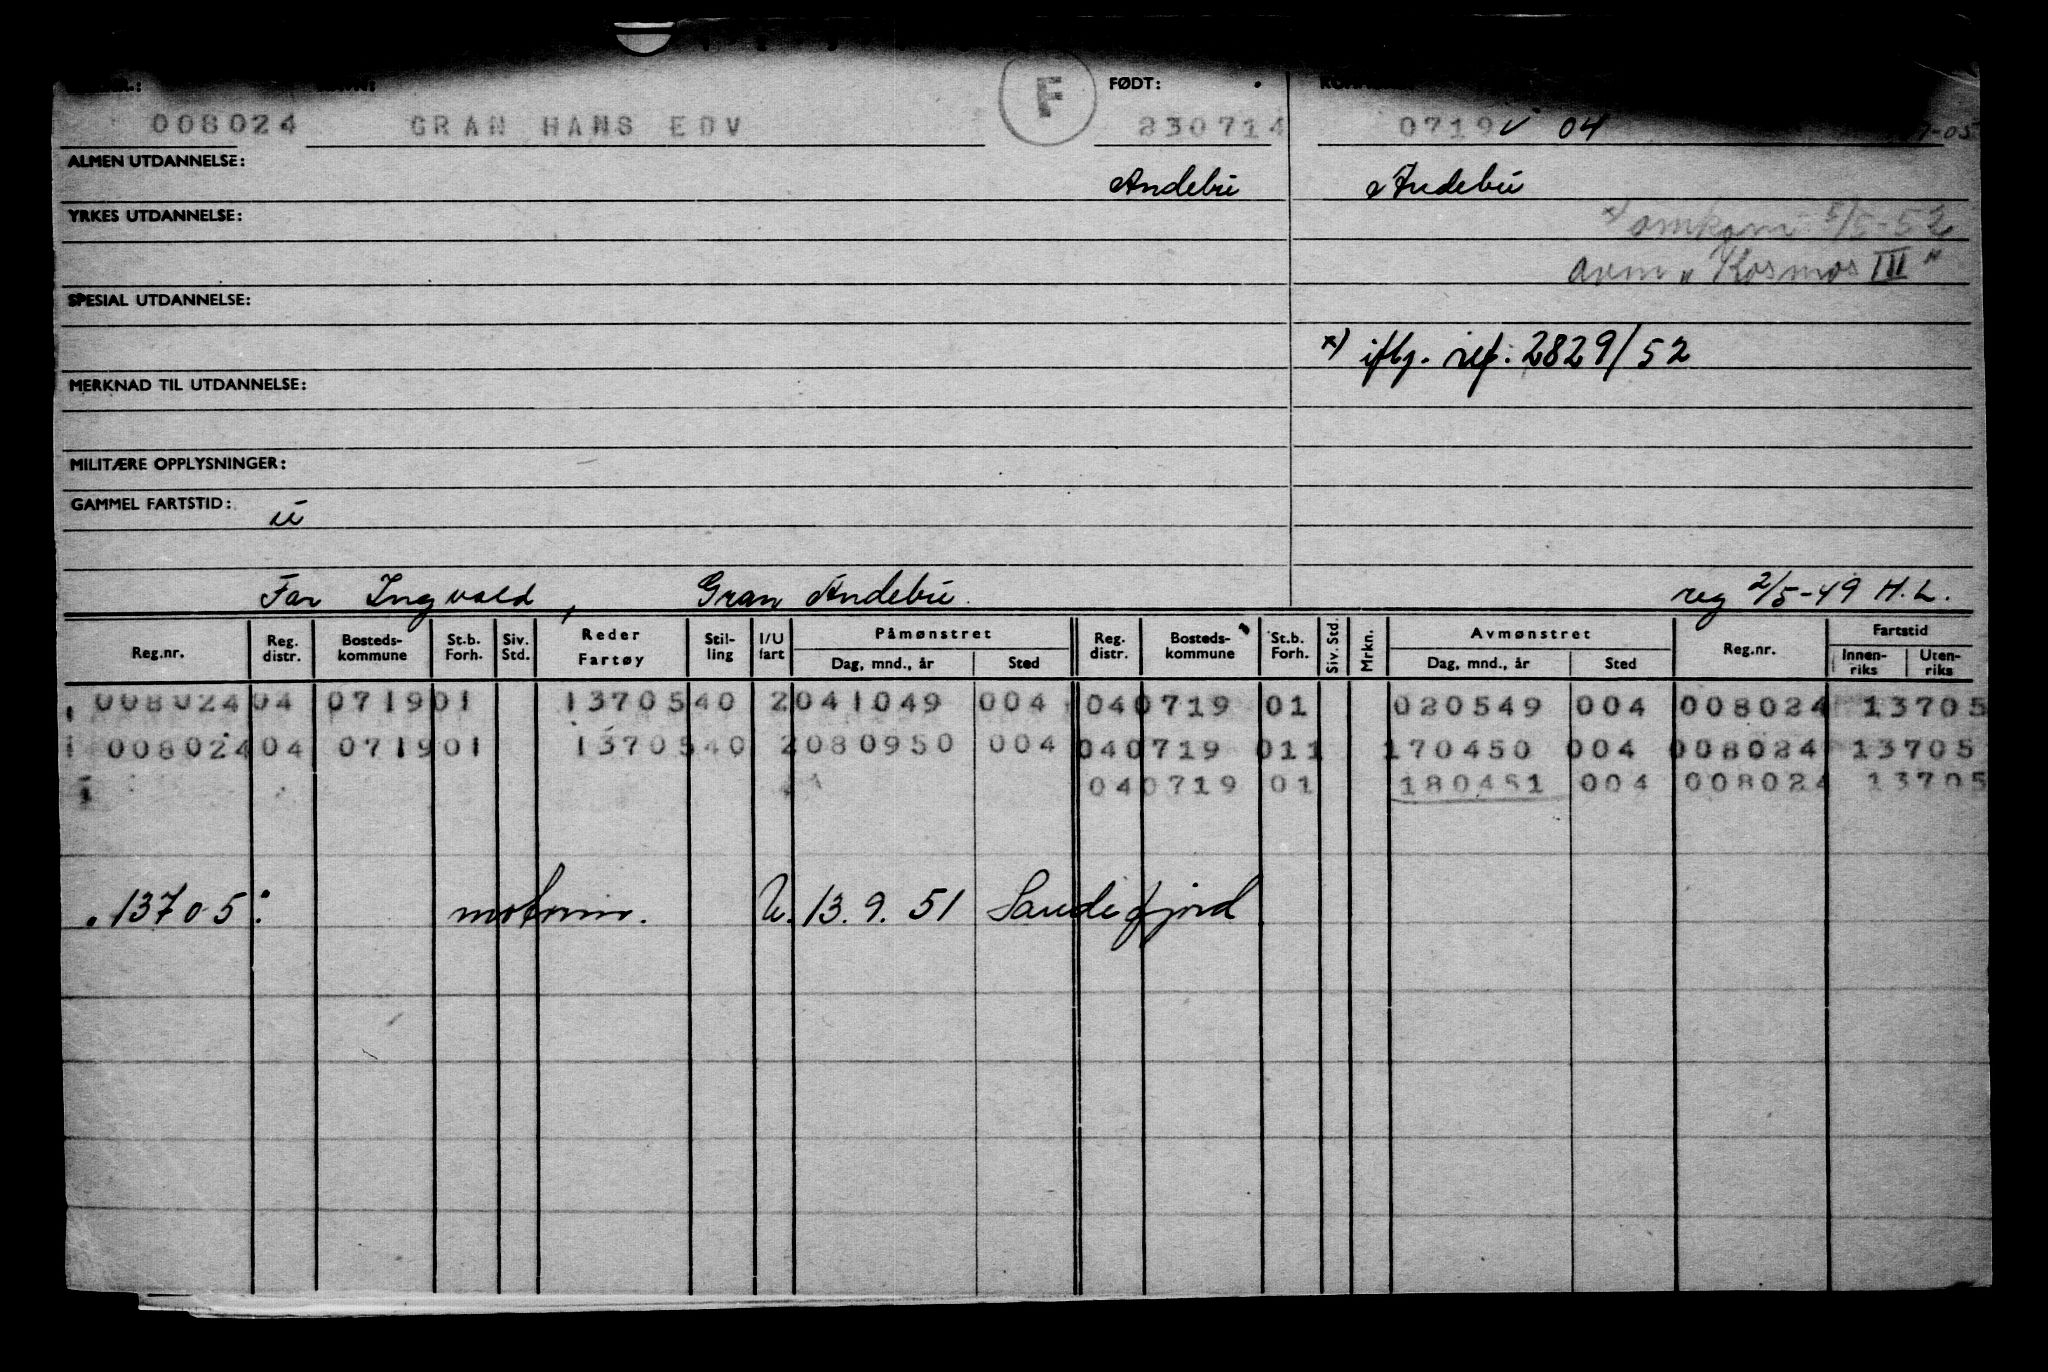 F FØDT:
008024 GRAN HANS EDV 230714 0719 v 04 -05
ALMEN UTDANNELSE: Andebu Andebu
YRKES UTDANNELSE: x) omkom 5/5-52
"Kosmos III"
SPESIAL UTDANNELSE:
x) iflg. ref. 2829/52
MERKNAD TIL UTDANNELSE:
MILITÆRE OPPLYSNINGER:
GAMMEL FARTSTID: u
Far Ingvald, Gran Andebu. reg 2/5-49 H.L.
Reg.nr. Reg. distr. Bosteds-kommune St.b. Forh. Siv. Std. Reder Fartøy Stil-ling I/U fart Påmønstret Dag, mnd., år Sted Reg. distr. Bosteds-kommune St.b. Forh. Siv. Std. Mrkn. Avmønstret Dag, mnd., år Sted Reg.nr. Fartstid Innen-riks Uten-riks
008024 04 0719 01 13705 40 2 041049 004 04 0719 01 020549 004 008024 13705
008024 04 0719 01 13705 40 2 080950 004 04 0719 011 170450 004 008024 13705
04 0719 01 180451 004 008024 13705
13705: motorm. U. 13.9.51 Sandefjord